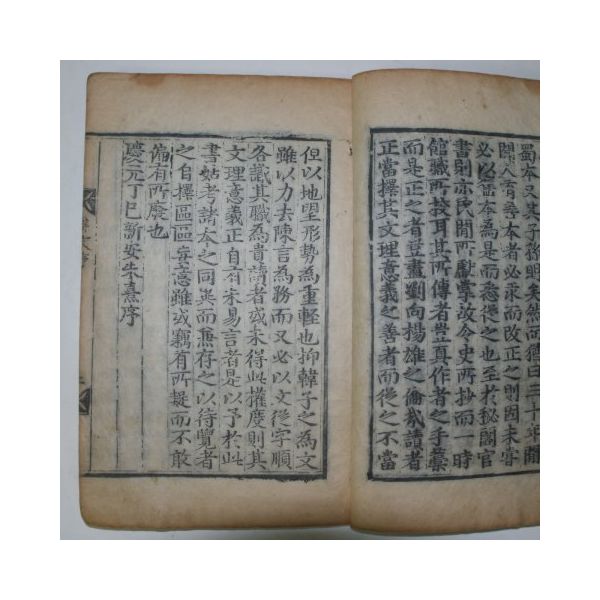 蜀本又其子孫明矣然而猶曰三十年間
聞人有善本者必求而改正之則固未嘗
必以舊本為是而悉從之也至於秘閣官
書則亦民間所獻掌故令史所抄而一時
館職所校耳其所傳者豈真作者之手藁
而是正之者豈盡劉向揚雄之倫哉讀者
正當擇其文理意義之善者而從之不當
但以地望形勢為重輕也抑韓子之為文
雖以力去陳言為務而又必以文從字順
各識其職為貴讀者或未得此權度則其
文理意義正自有未易言者是以予於此
書姑考諸本之同異而兼存之以待覽者
之自擇區區妄意雖或竊有所疑而不敢
偏有所廢也
慶元丁巳新安朱熹序